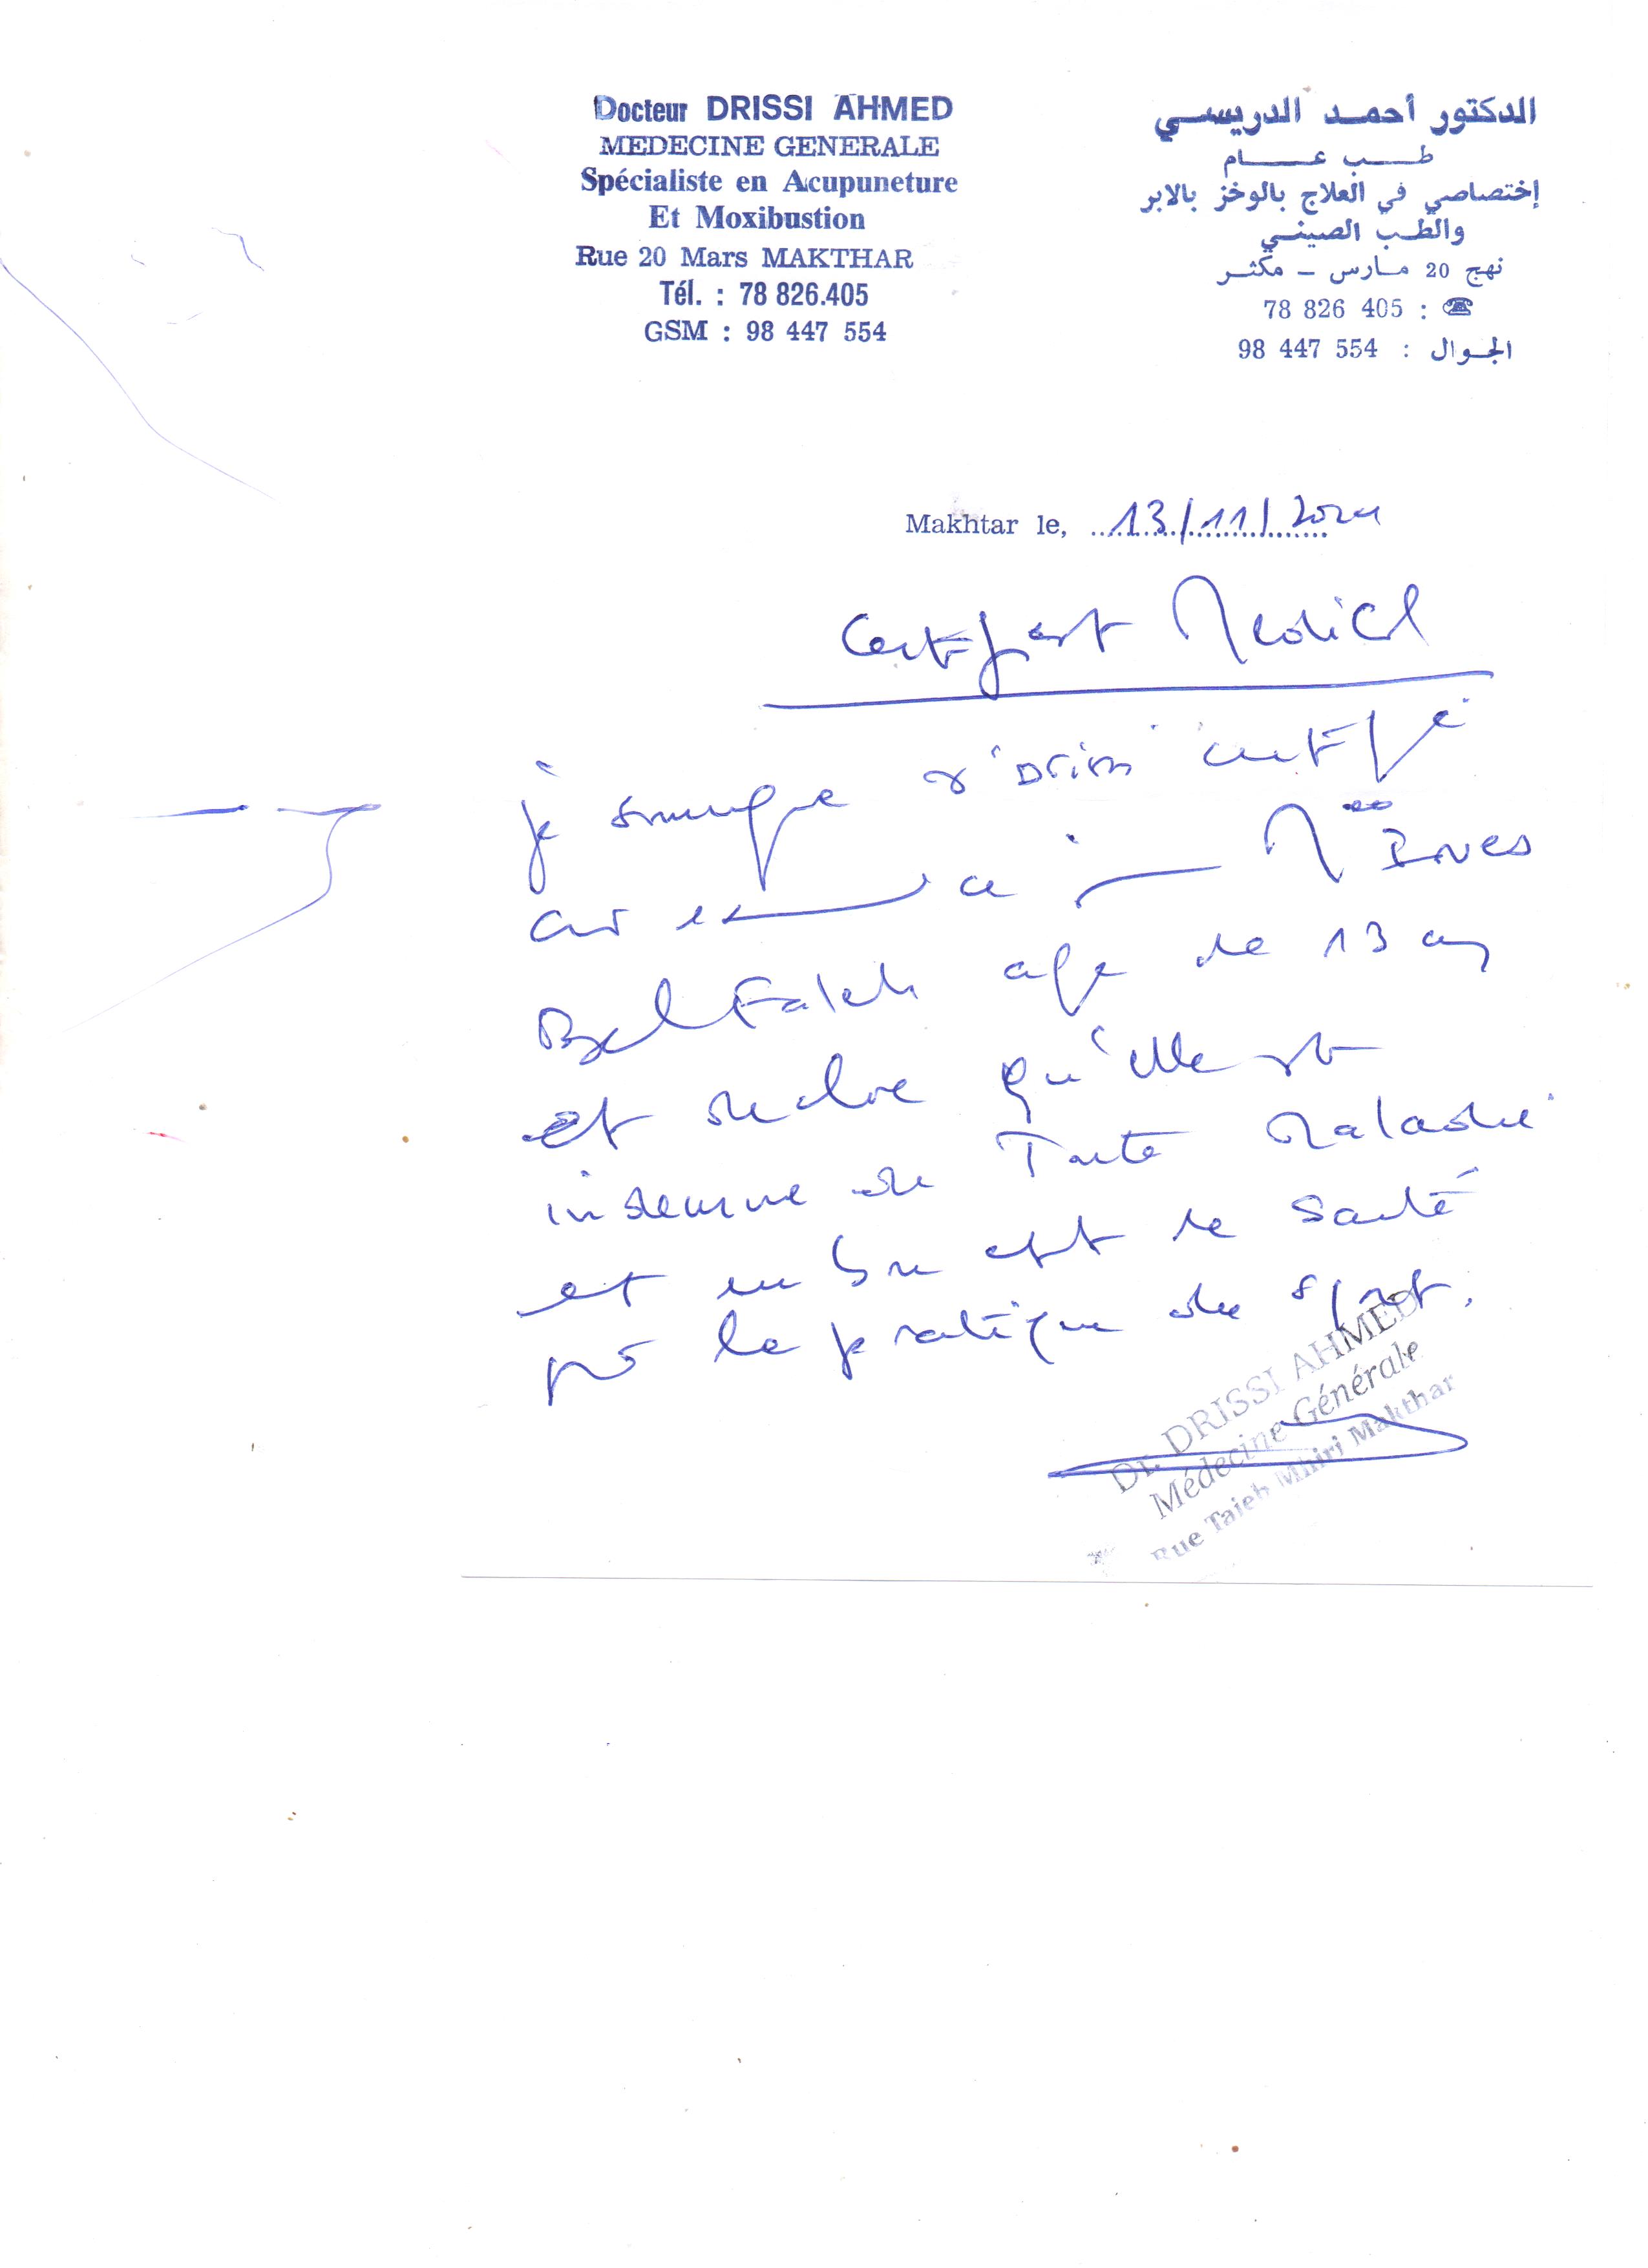 Docteur DRISSI AHMED
MEDECINE GENERALE
Spécialiste en Acupuneture
Et Moxibustion
Rue 20 Mars MAKTHAR
Tél. : 78 826.405
GSM : 98 447 554
الدكتور أحمد الدريسي
طب عام
إختصاصي في العلاج بالوخز بالابر
والطب الصيني
نهج 20 مارس - مكثر
78 826 405 : ☎
الجوال : 98 447 554
Makhtar le, 13/11/2024
Certificat Medical
je soussigne Dr Driss certifie
avoir examiné ce jour Mlle Ines
Bel Faleh age de 13 ans
et declare qu'elle est
indemne de Toute Maladie
et en bon etat de santé
pour la pratique du sport.
Dr. DRISSI AHMED
Médecine Générale
Rue Taieb Mhiri Makthar